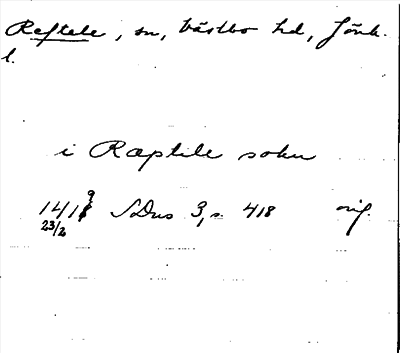 Reftele, sn, Västbo hd, Jönk.
l.
i Raptile sokn
1419 SDns 3, s. 418 orig.
23/2